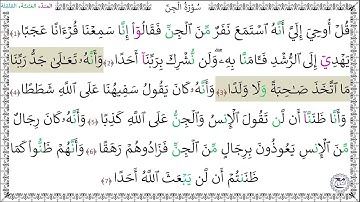 سُورَةُ الْجِنِّ
قُلْ أُوحِيَ إِلَيَّ أَنَّهُ ٱسْتَمَعَ نَفَرٌ مِّنَ ٱلْجِنِّ فَقَالُوٓاْ إِنَّا سَمِعْنَا قُرْءَانًا عَجَبًا (1)
يَهْدِيٓ إِلَى ٱلرُّشْدِ فَـَٔامَنَّا بِهِۦ وَلَن نُّشْرِكَ بِرَبِّنَآ أَحَدًا (2) وَأَنَّهُۥ تَعَـٰلَىٰ جَدُّ رَبِّنَا
مَا ٱتَّخَذَ صَـٰحِبَةً وَلَا وَلَدًا (3) وَأَنَّهُۥ كَانَ يَقُولُ سَفِيهُنَا عَلَى ٱللَّهِ شَطَطًا (4)
وَأَنَّا ظَنَنَّآ أَن لَّن تَقُولَ ٱلْإِنسُ وَٱلْجِنُّ عَلَى ٱللَّهِ كَذِبًا (5) وَأَنَّهُۥ كَانَ رِجَالٌ
مِّنَ ٱلْإِنسِ يَعُوذُونَ بِرِجَالٍ مِّنَ ٱلْجِنِّ فَزَادُوهُمْ رَهَقًا (6) وَأَنَّهُمْ ظَنُّواْ كَمَا
ظَنَنتُمْ أَن لَّن يَبْعَثَ ٱللَّهُ أَحَدًا (7)